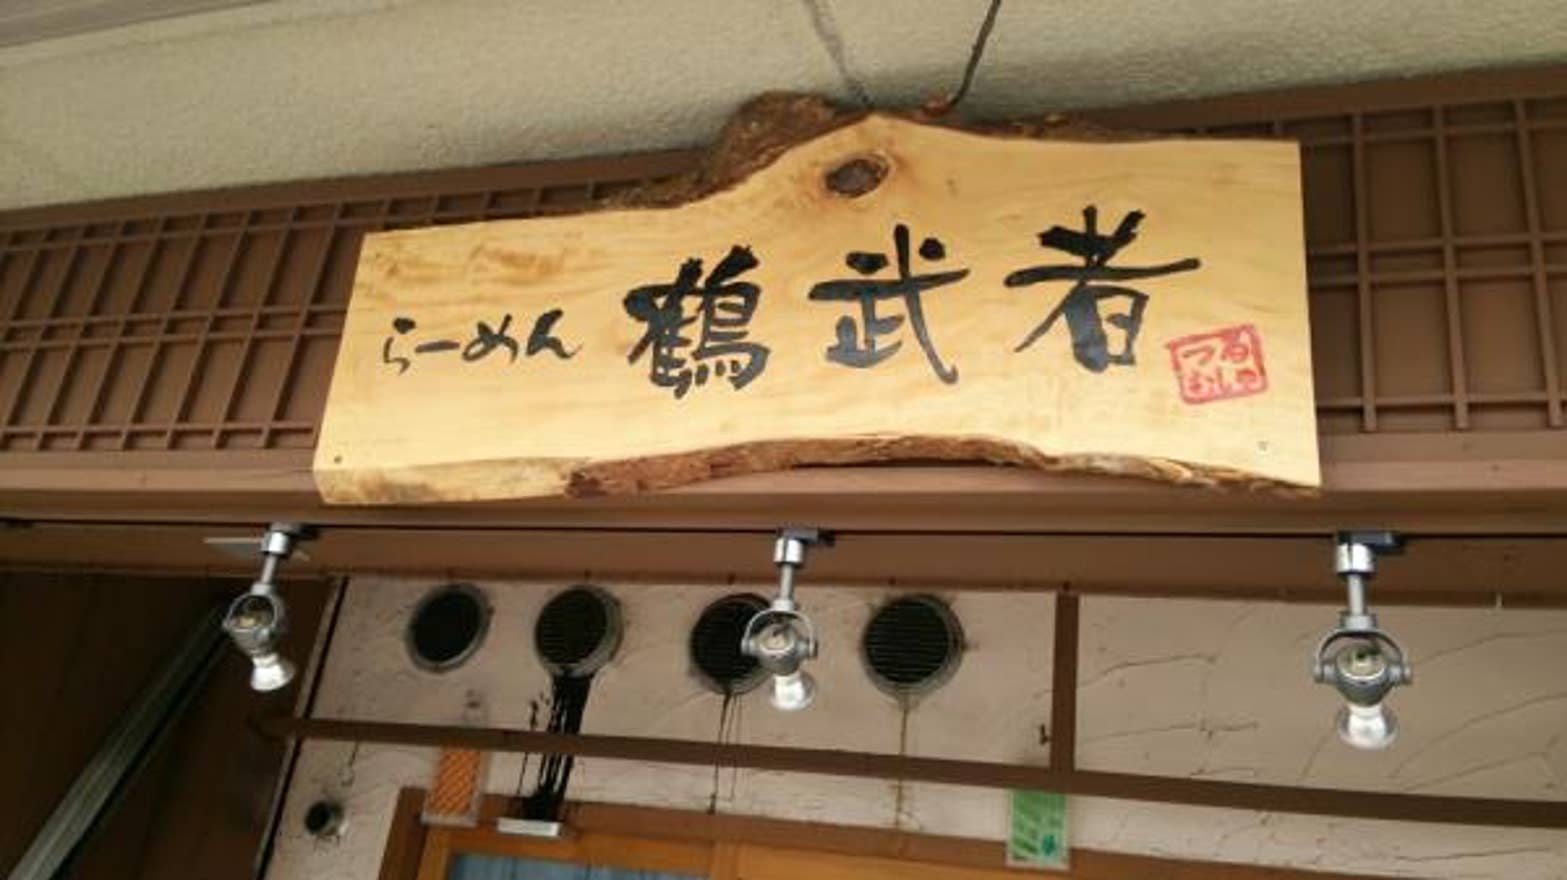 らーめん 鶴武者
つる
むしゃ